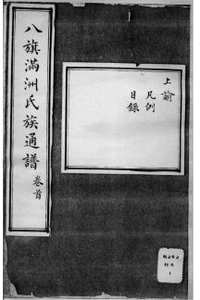 八旗滿洲氏族通譜 卷首
上諭
凡例
目錄